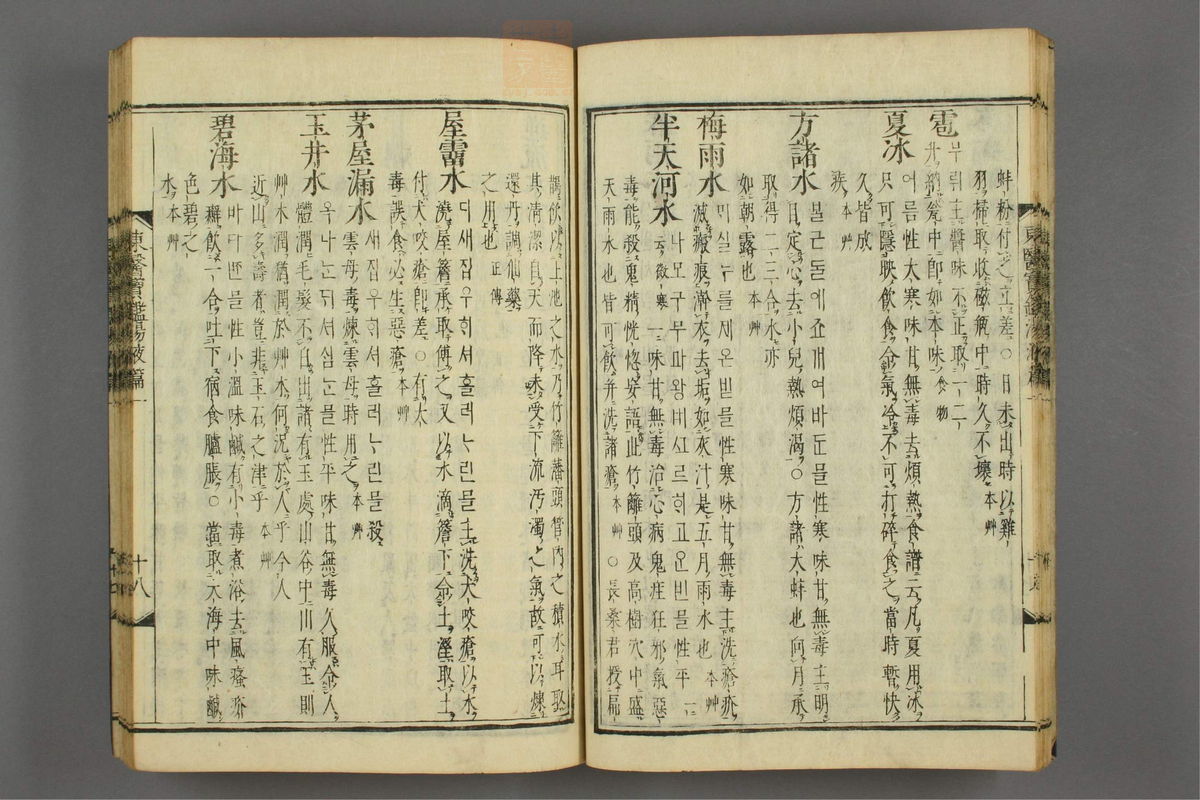 蚌粉付之立差○月未出時以雞
羽掃取收磁瓶中時久不壞本艸
雹무뤼主醬味不正取一二
升納瓮中卽如本味食物
夏冰어름性大寒味甘無毒去煩熱食譜云凡夏用冰
只可隱映飮食令氣冷不可打碎食之當時暫快
久皆成
疾本艸
方諸水에죠개여바믈性寒味甘無毒主明
目定心去小兒熱煩渴○方諸大蚌也向月承
取得二三合水亦
如朝露也本艸
梅雨水누를제온빋믈性寒味甘無毒主洗瘡疥
滅瘢痕澣衣去垢如灰汁是五月雨水也本艸
半天河水나모구무고믈性平一
云微寒味甘無毒治心病鬼疰狂邪氣惡
毒能殺鬼精恍惚妄語此竹籬頭及高樹穴中盛
天雨水也皆可飮幷洗諸瘡本艸○長桑君授扁
東醫寶鑑湯液篇一
鵲飮以上池之水乃竹籬藩頭管內之積水耳取
其淸潔自天而降未受下流污濁之氣故可以煉
還丹調仙藥
之用也正傳
屋霤水디새집우희셔흘러린믈主洗犬咬瘡以水
澆屋簷承取傅之又以水滴簷下令土溼取土
付犬咬瘡卽差○有大
毒誤食必生惡瘡本艸
茅屋漏水새집우희셔흘러린믈殺
雲母毒煉雲母時用之本艸
玉井水옥나뒤셔심믈性平味甘無毒久服令人
體潤毛髮不白出諸有玉處山谷中山有玉則
艸木潤猶潤於艸木何況於人乎今人
近山多壽者豈非玉石之津乎本艸
碧海水바믈性小溫味鹹有小毒煮浴去風瘙疥
癬飮一合吐下宿食臚脹○當取大海中味鹹
色碧之
水本艸
東醫寶鑑湯液篇一
十八